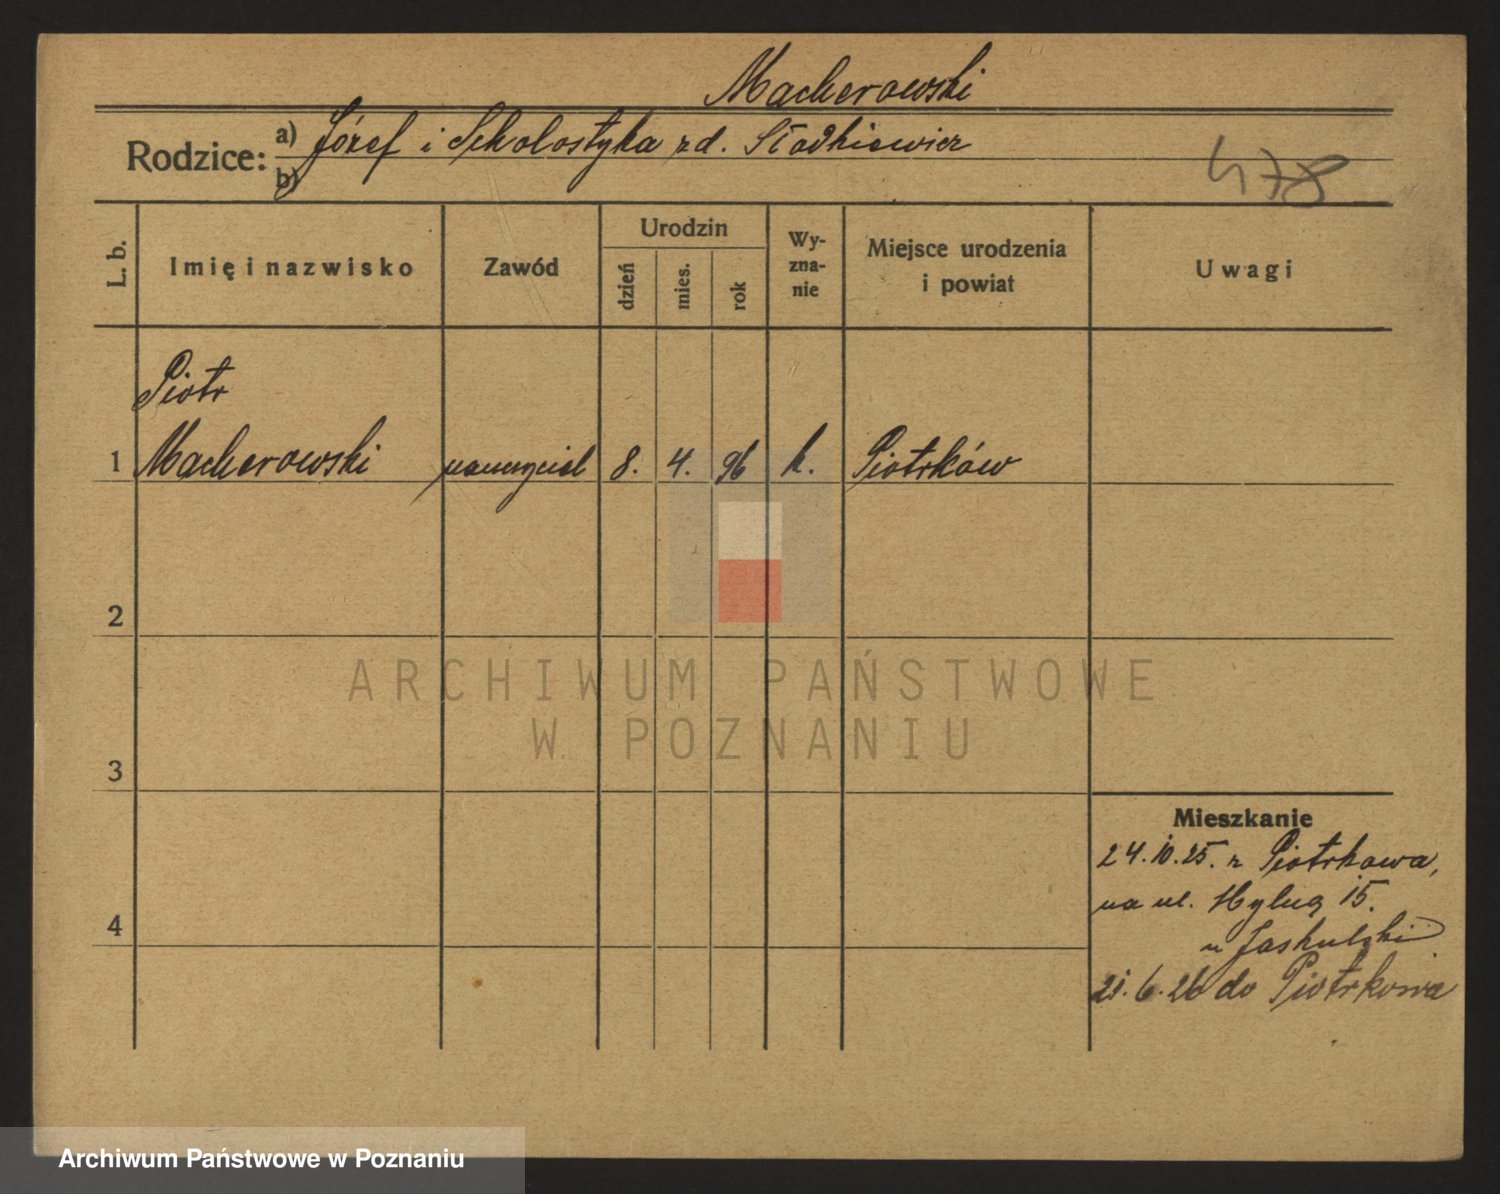 Macherowski
Rodzice: a) Józef i Scholostyka zd. Słodkiewicz
b)
478
L. b.
Imię i nazwisko
Zawód
Urodzin
dzień
mies.
rok
Wy-
zna-
nie
Miejsce urodzenia
i powiat
Uwagi
Piotr
1 Macherowski nauczyciel 8. 4. 96 k. Piotrków
2
3
4
ARCHIWUM PAŃSTWOWE
W POZNANIU
Mieszkanie
24.10.25. z Piotrkowa,
na ul. 15.
u Jaskulski
21.6.26 do Piotrkowa
Archiwum Państwowe w Poznaniu